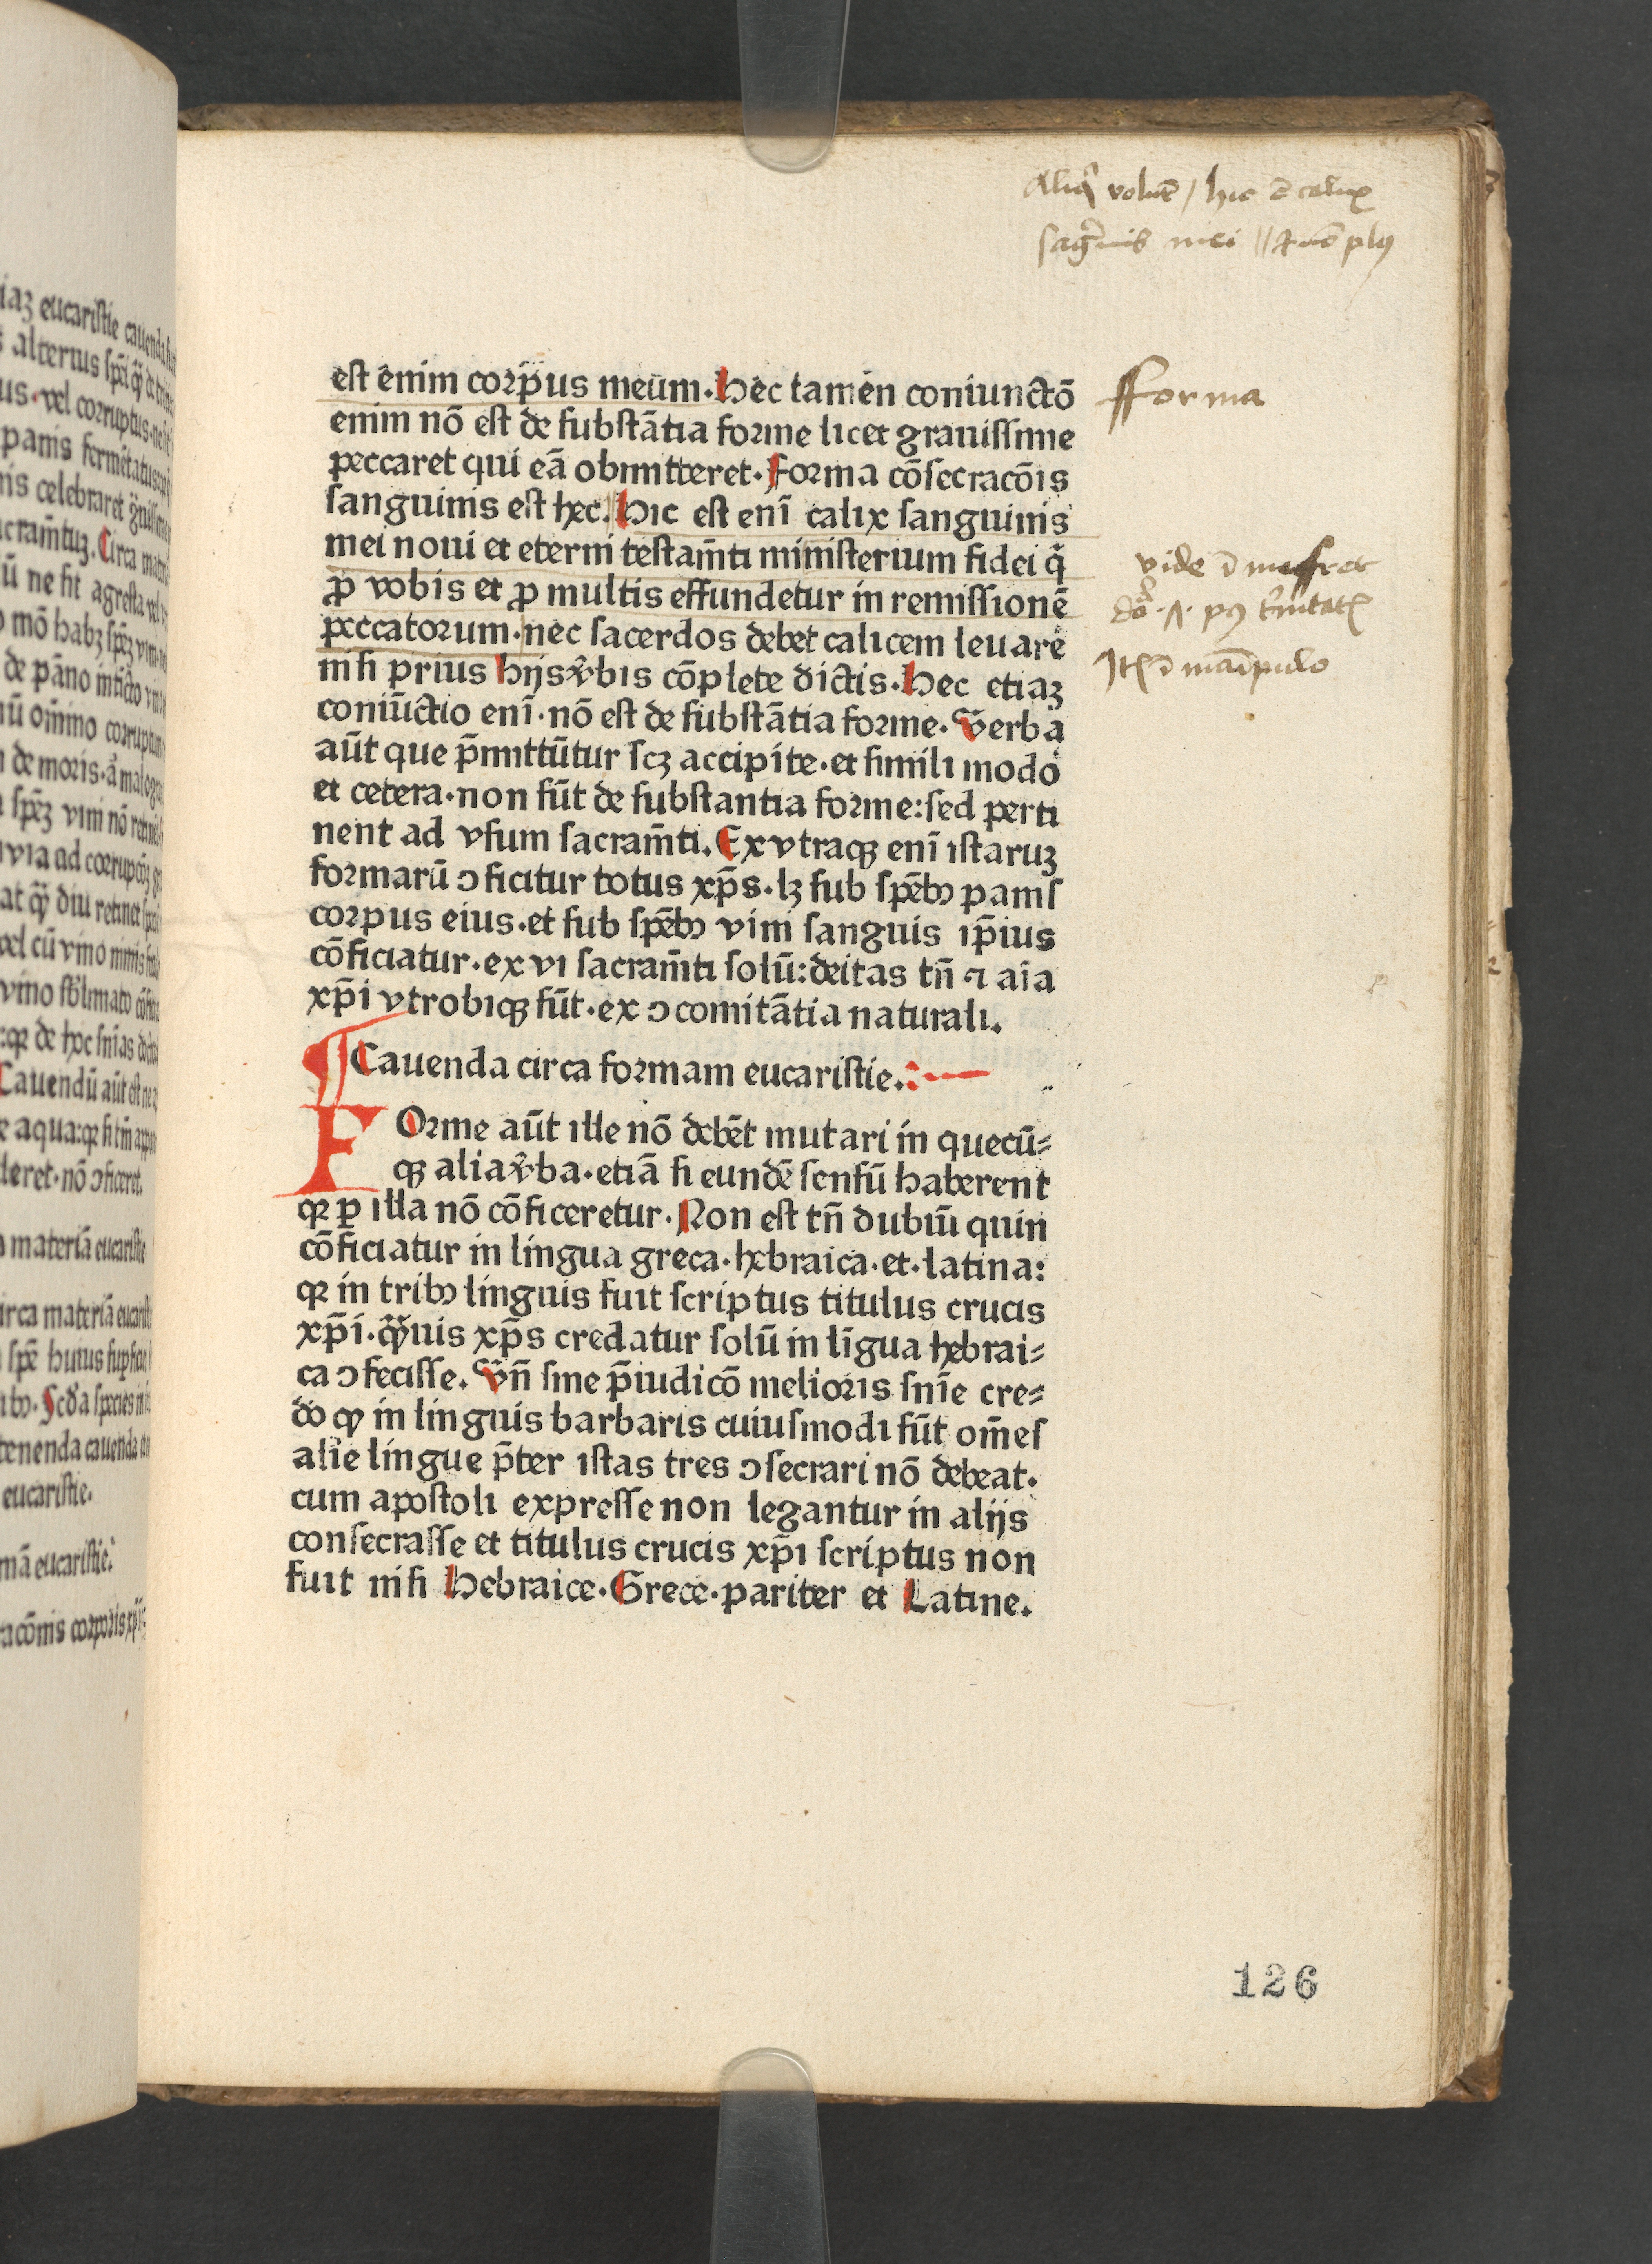 Aliqͥ volūt / hic ē calix
sāgͥnis mei // ⁊ nō plꝰ
est enim corpus meum. Hec tamen coniunctō
fforma
enim nō est de substātia forme licet grauissime
peccaret qui eā obmitteret. Forma cōsecracōis
sanguinis est hec. Hic est enī calix sanguinis
mei noui et eterni testam̄ti ministerium fidei q̄
vide ī
p̄ vobis et p̄ multis effundetur in remissionē
peccatorum. nec sacerdos debet calicem leuare
nisi prius hijs v̄bis cōplete dictis. Hec etiaꝫ
coniūctio enī. nō est de substātia forme. Verba
aūt que p̄mittūtur scꝫ accipite. et simili modo
et cetera. non sūt de substantia forme: sed perti
nent ad vsum sacram̄ti. Ex vtraqꝫ enī istaruꝫ
formarū ↄficitur totus xp̄s. lꝫ sub spēbꝰ panis
corpus eius. et sub spēbꝰ vini sanguis ip̄ius
cōficiatur. ex vi sacram̄ti solū: deitas tn̄ ⁊ aīa
xp̄i vtrobiqꝫ sūt. ex ↄcomitātia naturali.
¶ Cauenda circa formam eucaristie.
FOrme aūt ille nō debēt mutari in quecū⸗
qꝫ alia v̄ba. etiā si eundē sensū haberent
qꝛ ꝑ illa nō cōficeretur. Non est tn̄ dubiū quin
cōficiatur in lingua greca. hebraica. et. latina:
qꝛ in tribꝰ linguis fuit scriptus titulus crucis
xp̄i. q̄ꝫuis xp̄s credatur solū in līgua hebrai⸗
ca ↄfecisse. Vn̄ sine p̄iudicō melioris snīe cre⸗
do ꝙ in linguis barbaris cuiusmodi sūt om̄es
alie lingue p̄ter istas tres ↄsecrari nō debeat.
cum apostoli expresse non legantur in alijs
consecrasse et titulus crucis xp̄i scriptus non
fuit nisi Hebraice. Grece. pariter et Latine.
126